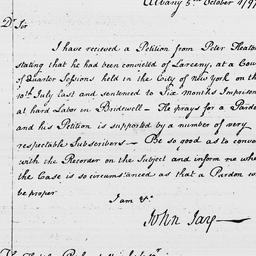 Albany 5th October 179
Dr Sir
I have received a Petition from Peter Heaton
stating that he had been convicted of Larceny, at a Cou
of Quarter Sessions held in the City of New York on the
10th July last and sentenced to Six Months Imprison
at hard Labor in Bridewell— He prays for a Pardo
and his Petition is supported by a number of very
respectable Subscribers— Be so good as to conve
with the Recorder on the Subject and inform me whe
the Case is so circumstanced as that a Pardon wo
be proper
I am &c.
John Jay—